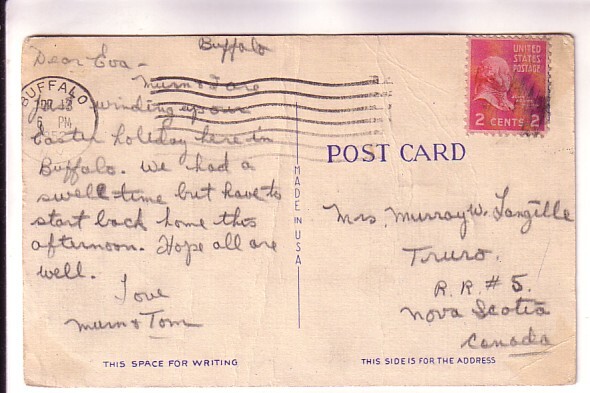 Buffalo
Dear Eva -
Mum & I are
just winding up our
Easter holiday here in
Buffalo. We had a
swell time but have to
start back home this
afternoon. Hope all are
well.
Love
Mum & Tom
THIS SPACE FOR WRITING
BUFFALO
PM
MADE IN USA
UNITED
STATES
POSTAGE
2 CENTS 2
POST CARD
Mrs. Murray W. Langille
Truro.
R.R. # 5.
Nova Scotia
Canada
THIS SIDE IS FOR THE ADDRESS